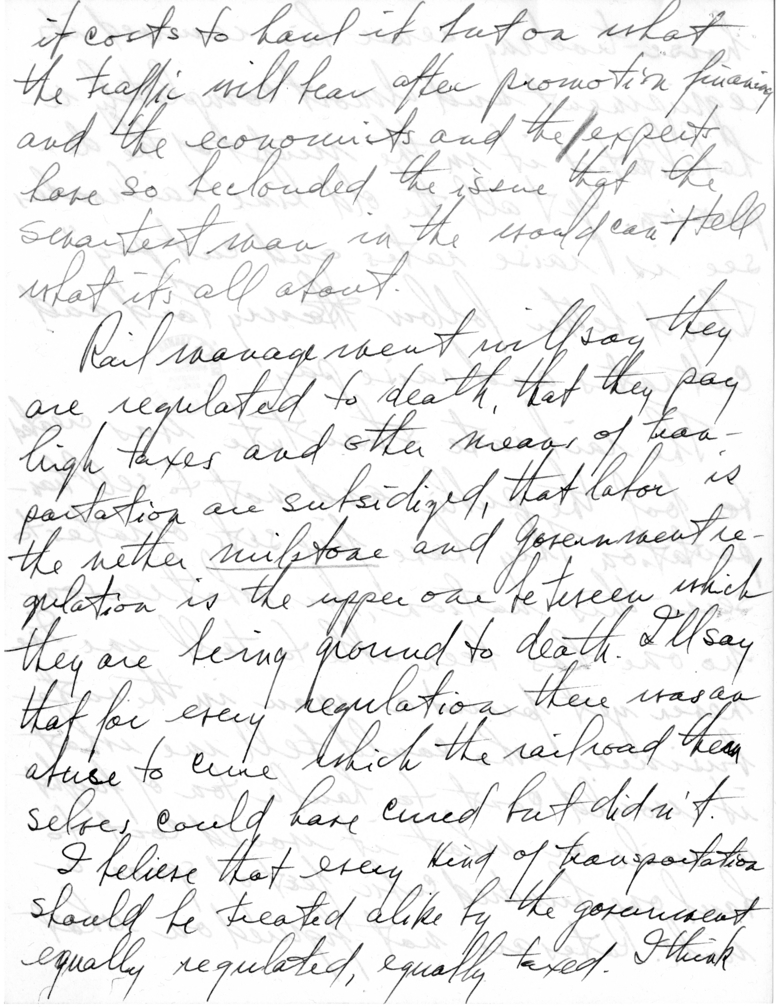 it costs to haul it but on what
the traffic will bear after promotion financing
and the economists and the experts
have so beclouded the issue that the
smartest man in the world can't tell
what its all about.
Rail management will say they
are regulated to death, that they pay
high taxes and other means of tran-
portation are subsidized, that labor is
the nether milstone and Government re-
gulation is the upper one between which
they are being ground to death. I'll say
that for every regulation there was an
abuse to cure which the railroad them
selves could have cured but didn't.
I believe that every kind of transportation
should be treated alike by the government
equally regulated, equally taxed. I think